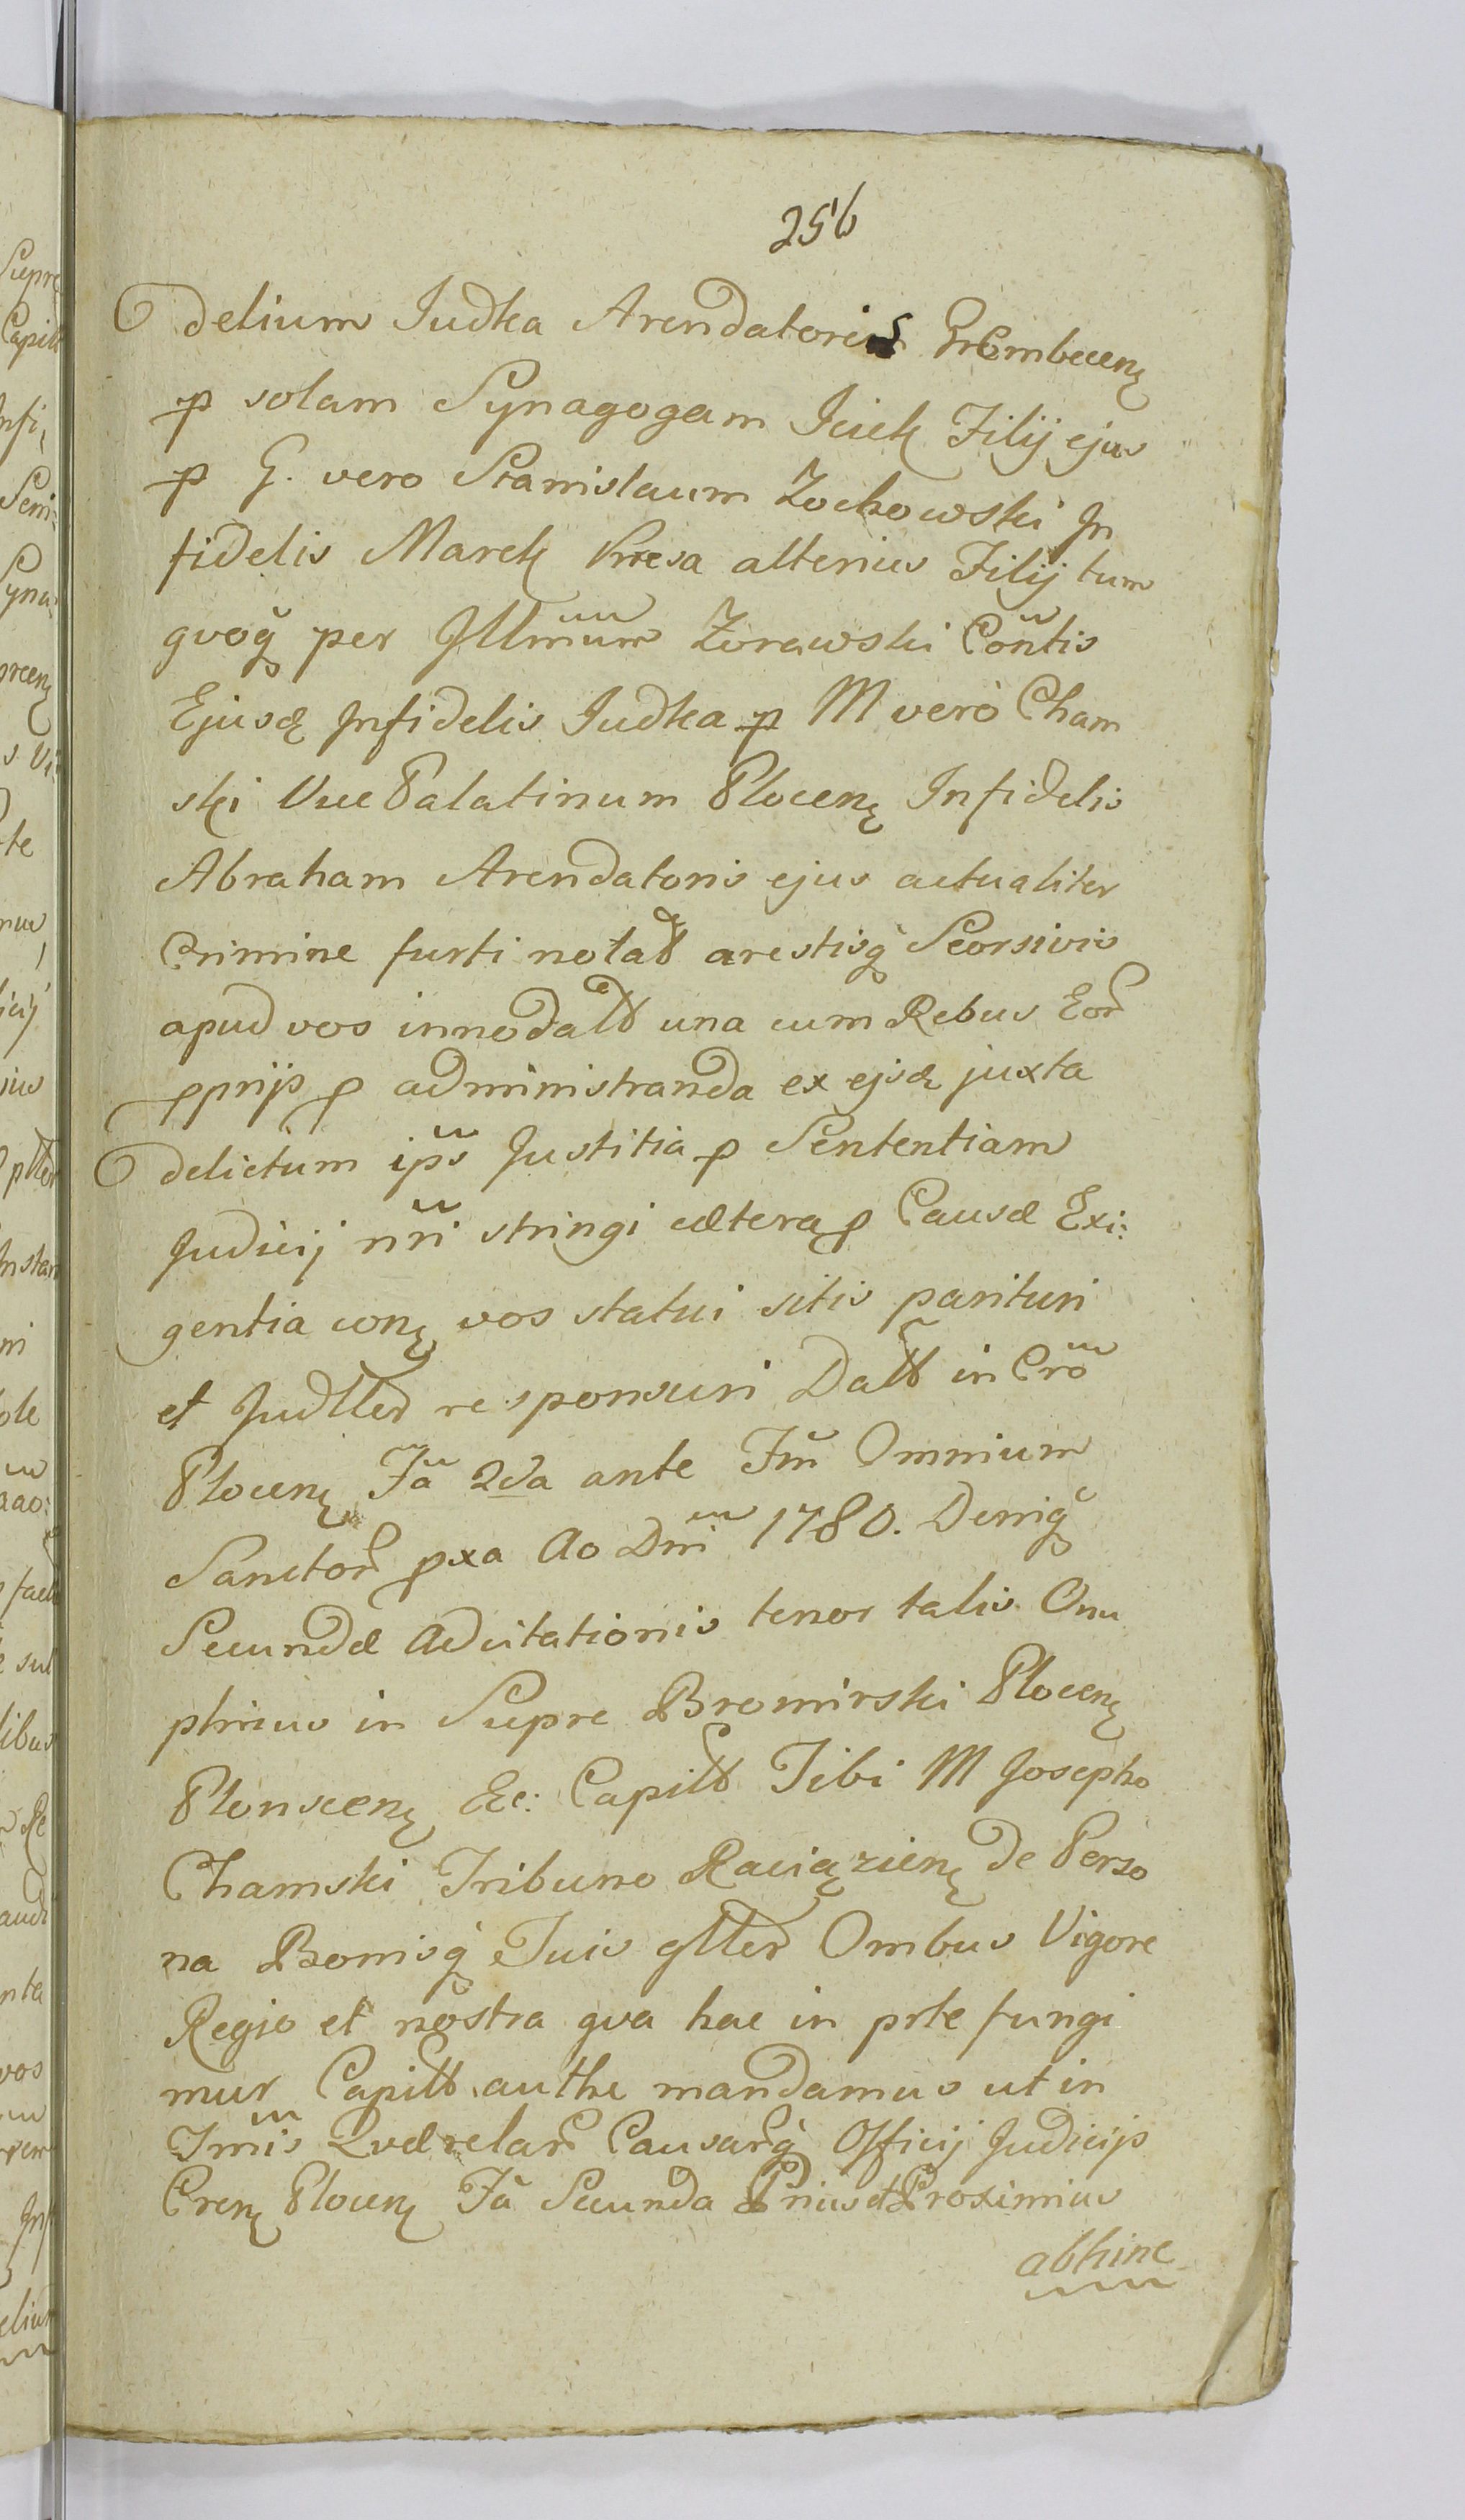 256
delium Judka Arendatoris Grembecenę
p solam Synagogam Jcek Filij ejus
p G. vero Stanislaum Zochowski Jn
fidelis Marek Kresa alterius Filij tum
qvoq̃ per Jllm̃um Zorawski Con̄tis
Ejusdę Jnfidelis Judka p M verò Cham
ski Vice Palatinum Plocenę Infidelis
Abraham Arendatoris ejus actualiter
Crimine furti notat arestisq̀ Seorsivis
apud vos innodatt una cum Rebus Eor
pprijs p administranda ex ejsdę juxta
delictum ip̃s Justitia p Sententiam
Judicij nr̃i stringi cætera p Causæ Exi:
gentia conę vos statui sitis parituri
et Judller responsuri Datt in Cr̃o
Plocenę F̃a 2da ante Fm̃ Omnium
Sanctor pxa Ao Dnĩ 1780. Deniq̃
Secundæ Adcitationis tenor talis Onu
phrius in Supre Bromirski Plocenę
Plonscenę Ec: Capitt Tibi M Josepho
Chamski Tribuno Raciązienę de Perso
na Bonisq̀ Tuis gller Omĩbus Vigore
Regio et nostra qva hac in prte fungi
mur Capitt authe mandamus ut in
Tm̃is Qværelar Causarq̀ Officij Judicijs
Crenę Plocenę F̃a Secunda Prius et Proximius
abhinc